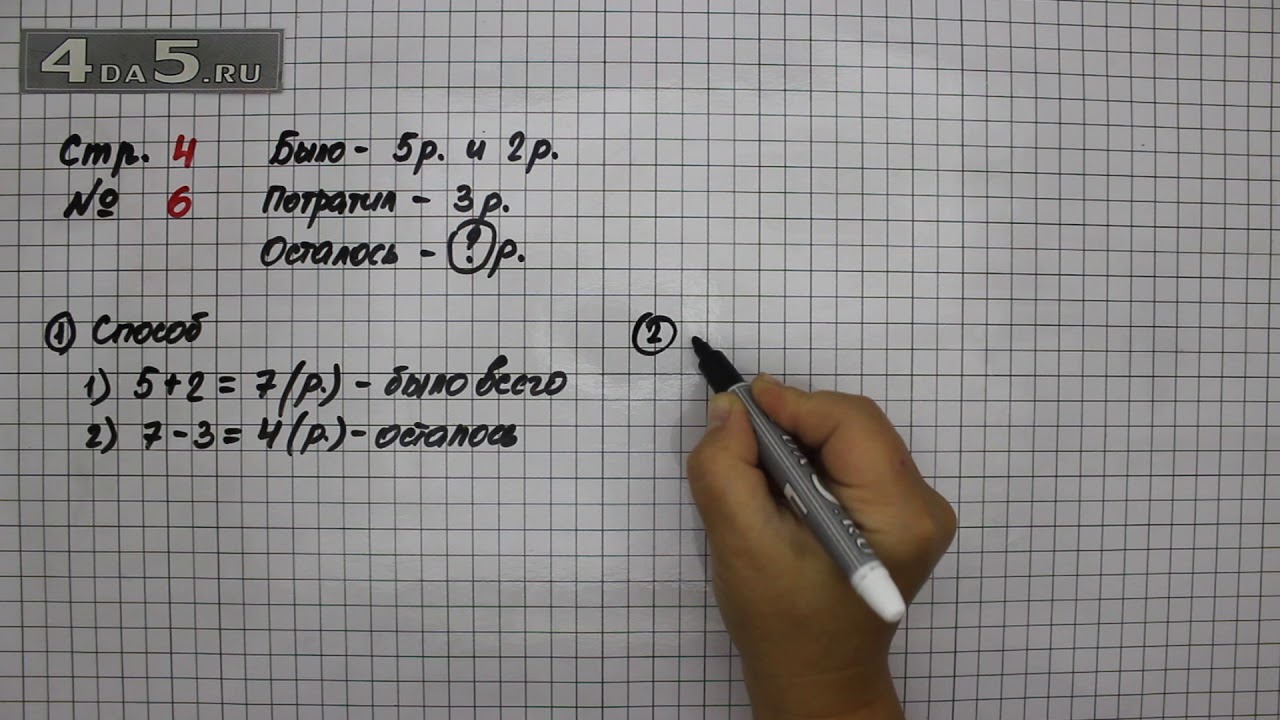 4DA5.RU
Стр. 4
№ 6
Было - 5р. и 2р.
Потратил - 3р.
Осталось - ? р.
1 Способ
1) 5 + 2 = 7 (р.) - было всего
2) 7 - 3 = 4 (р.) - осталось
2